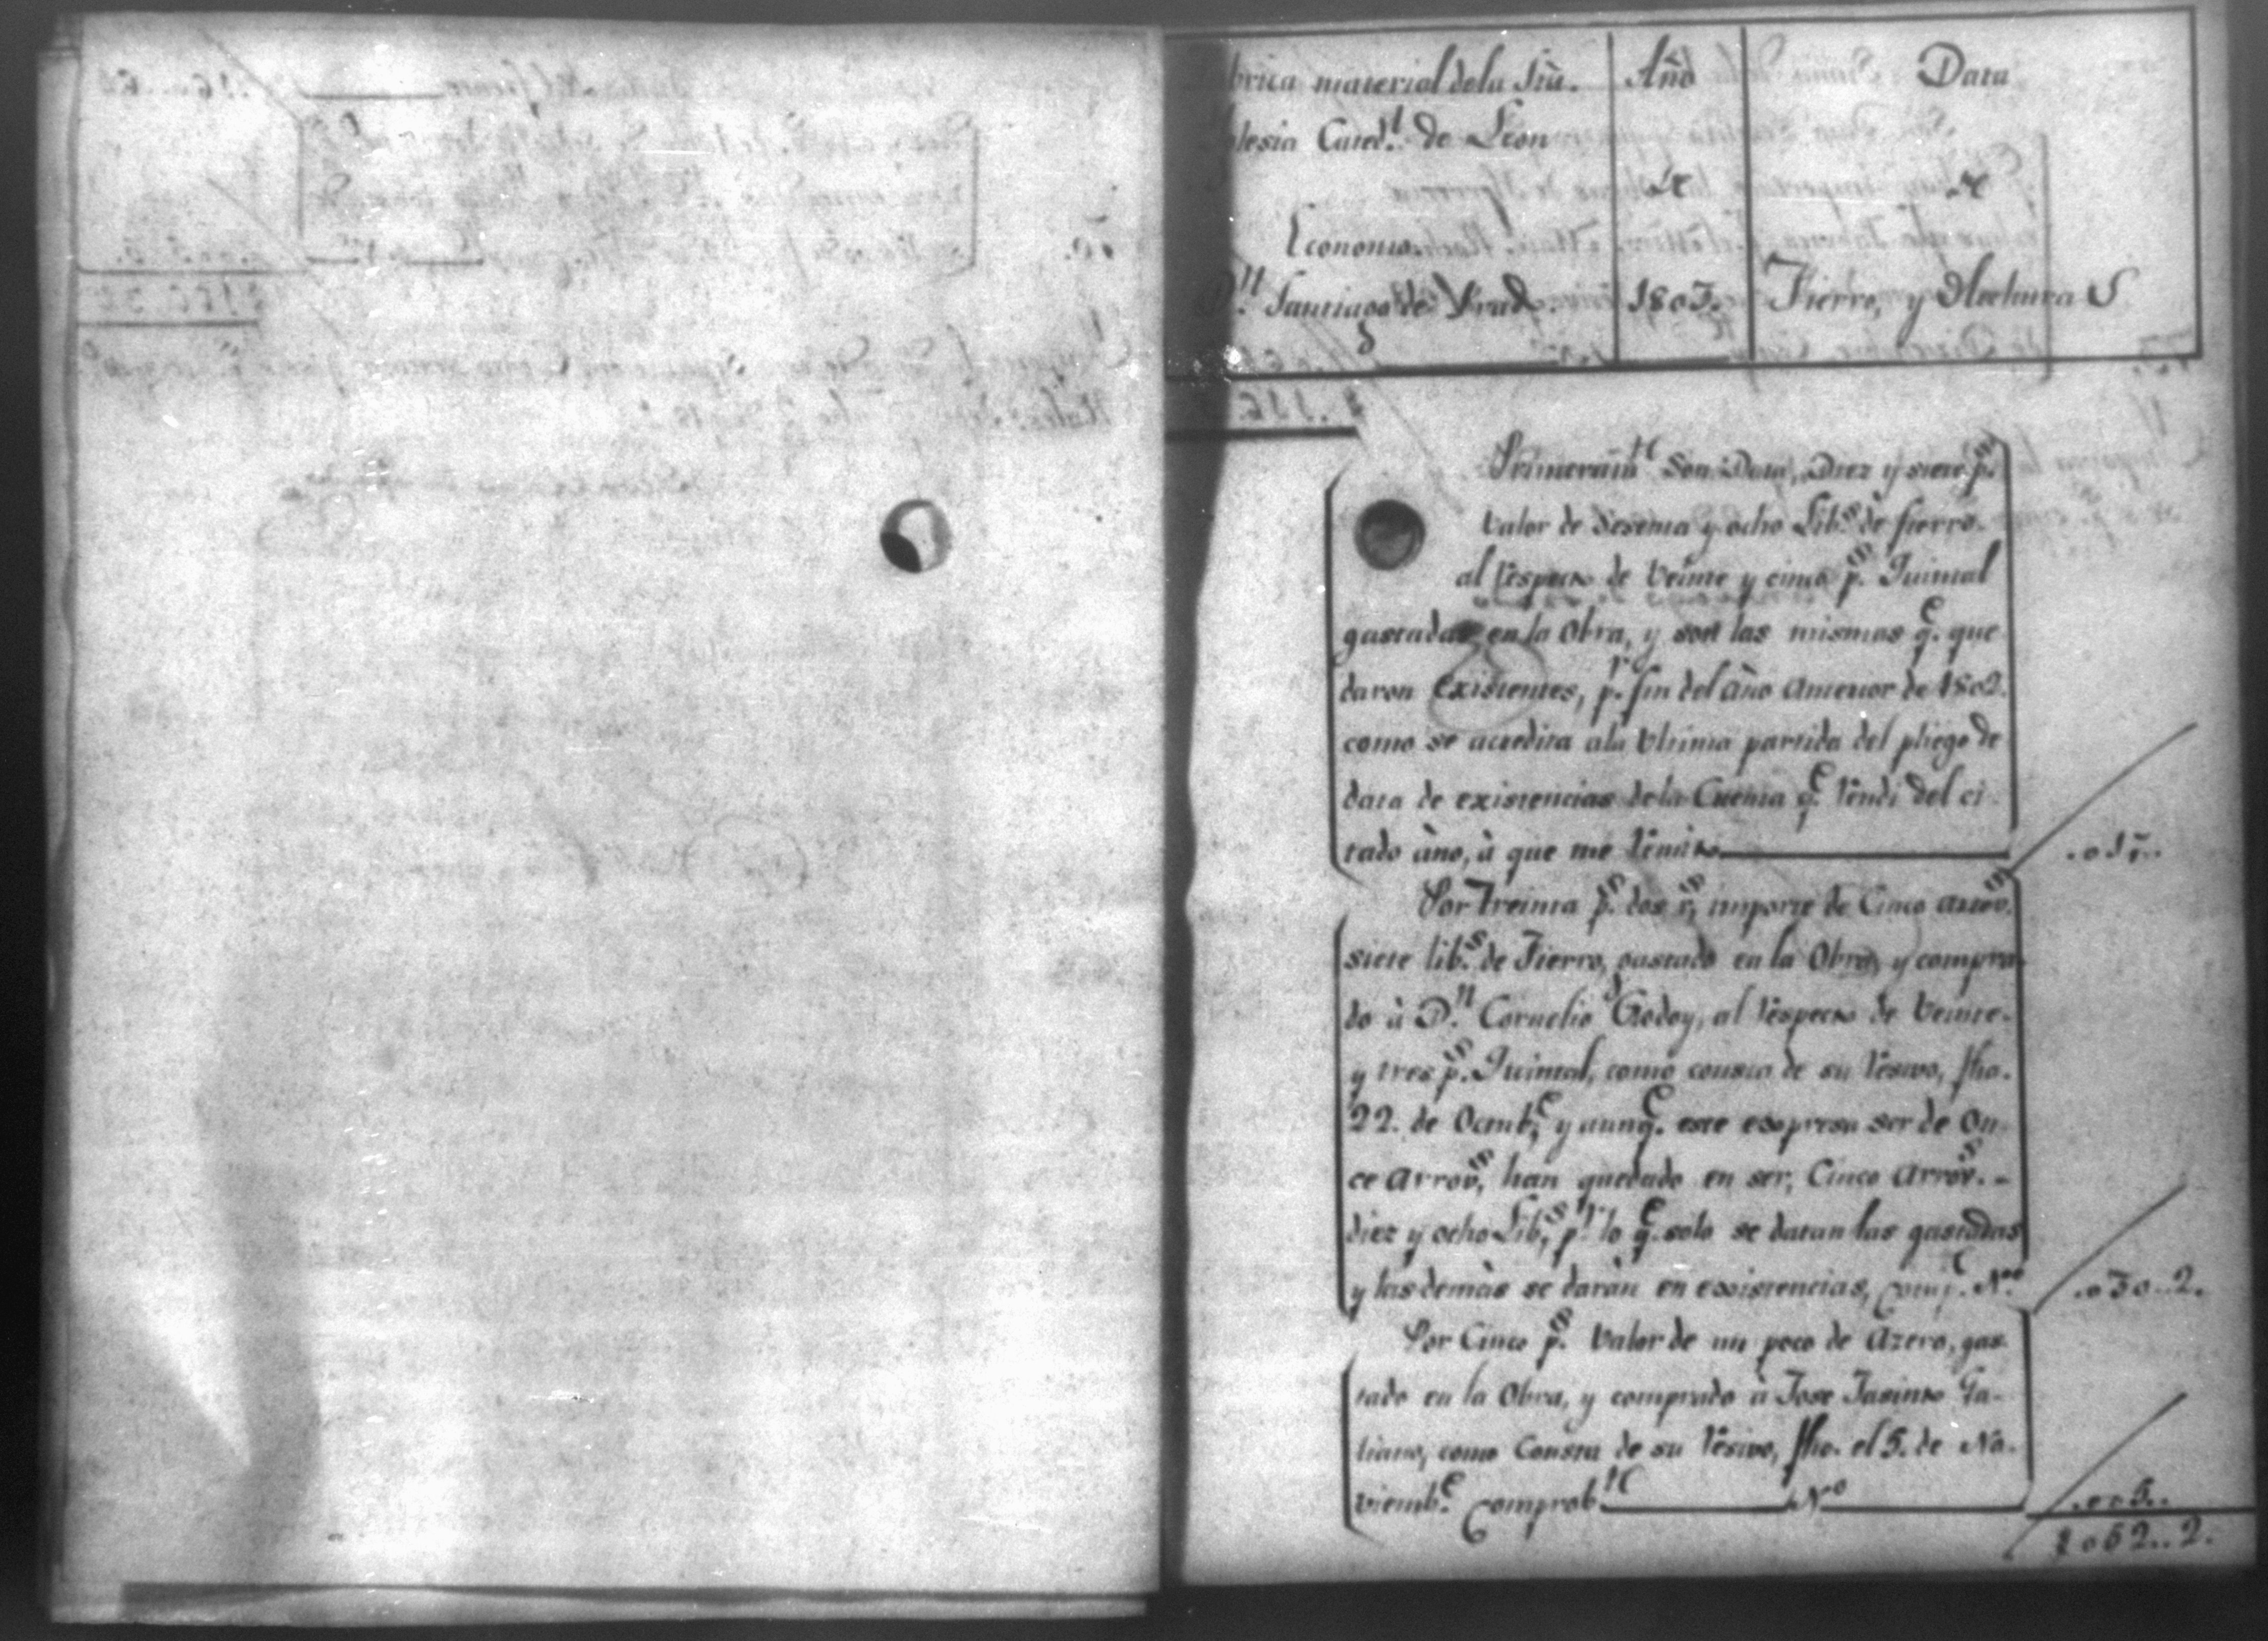 brica material de la Sta.
glesia Cated.l de Leon
Economo.
D.n Santiago de
Año
de
1803.
Data
de
Fierro, y Hechura S
Primeram.te Son Data, Diez y siete p.s
valor de Sesenta y ocho Lib.s de fierro.
al respecto de veinte y cinco p.s Quintal
gastadas en la Obra, y son las mismas q.e que
daron Existentes, p.r fin del año anterior de 1802.
como se acredita a la ultima partida del pliego de
data de existencias de la Cuenta q.e rendi del ci
tado àno, à que me remito
.017..
Por Treinta p.s dos r.s importe de Cinco arrov.s
siete lib.s de Fierro, gastado en la Obra, y compra
do à D.n Cornelio Godoy, al respecto de veinte
y tres p.s Quintal, como consta de su resivo, fho.
22. de Octub.e y aunq.e este expresa ser de On
ce arrov.s han quedado en ser, Cinco arrov.s
diez y ocho Lib.s p.r lo q.e solo se datan las gastadas
y las demàs se daràn en existencias, N.o
.030..2.
Por Cinco p.s valor de un poco de Azero, gas
tado en la Obra, y comprado à Jose Jasinto Ga-
liano, como Consta de su resivo, fho. el 5. de No-
viemb.e Comprob.te N.o
.005..
052..2.